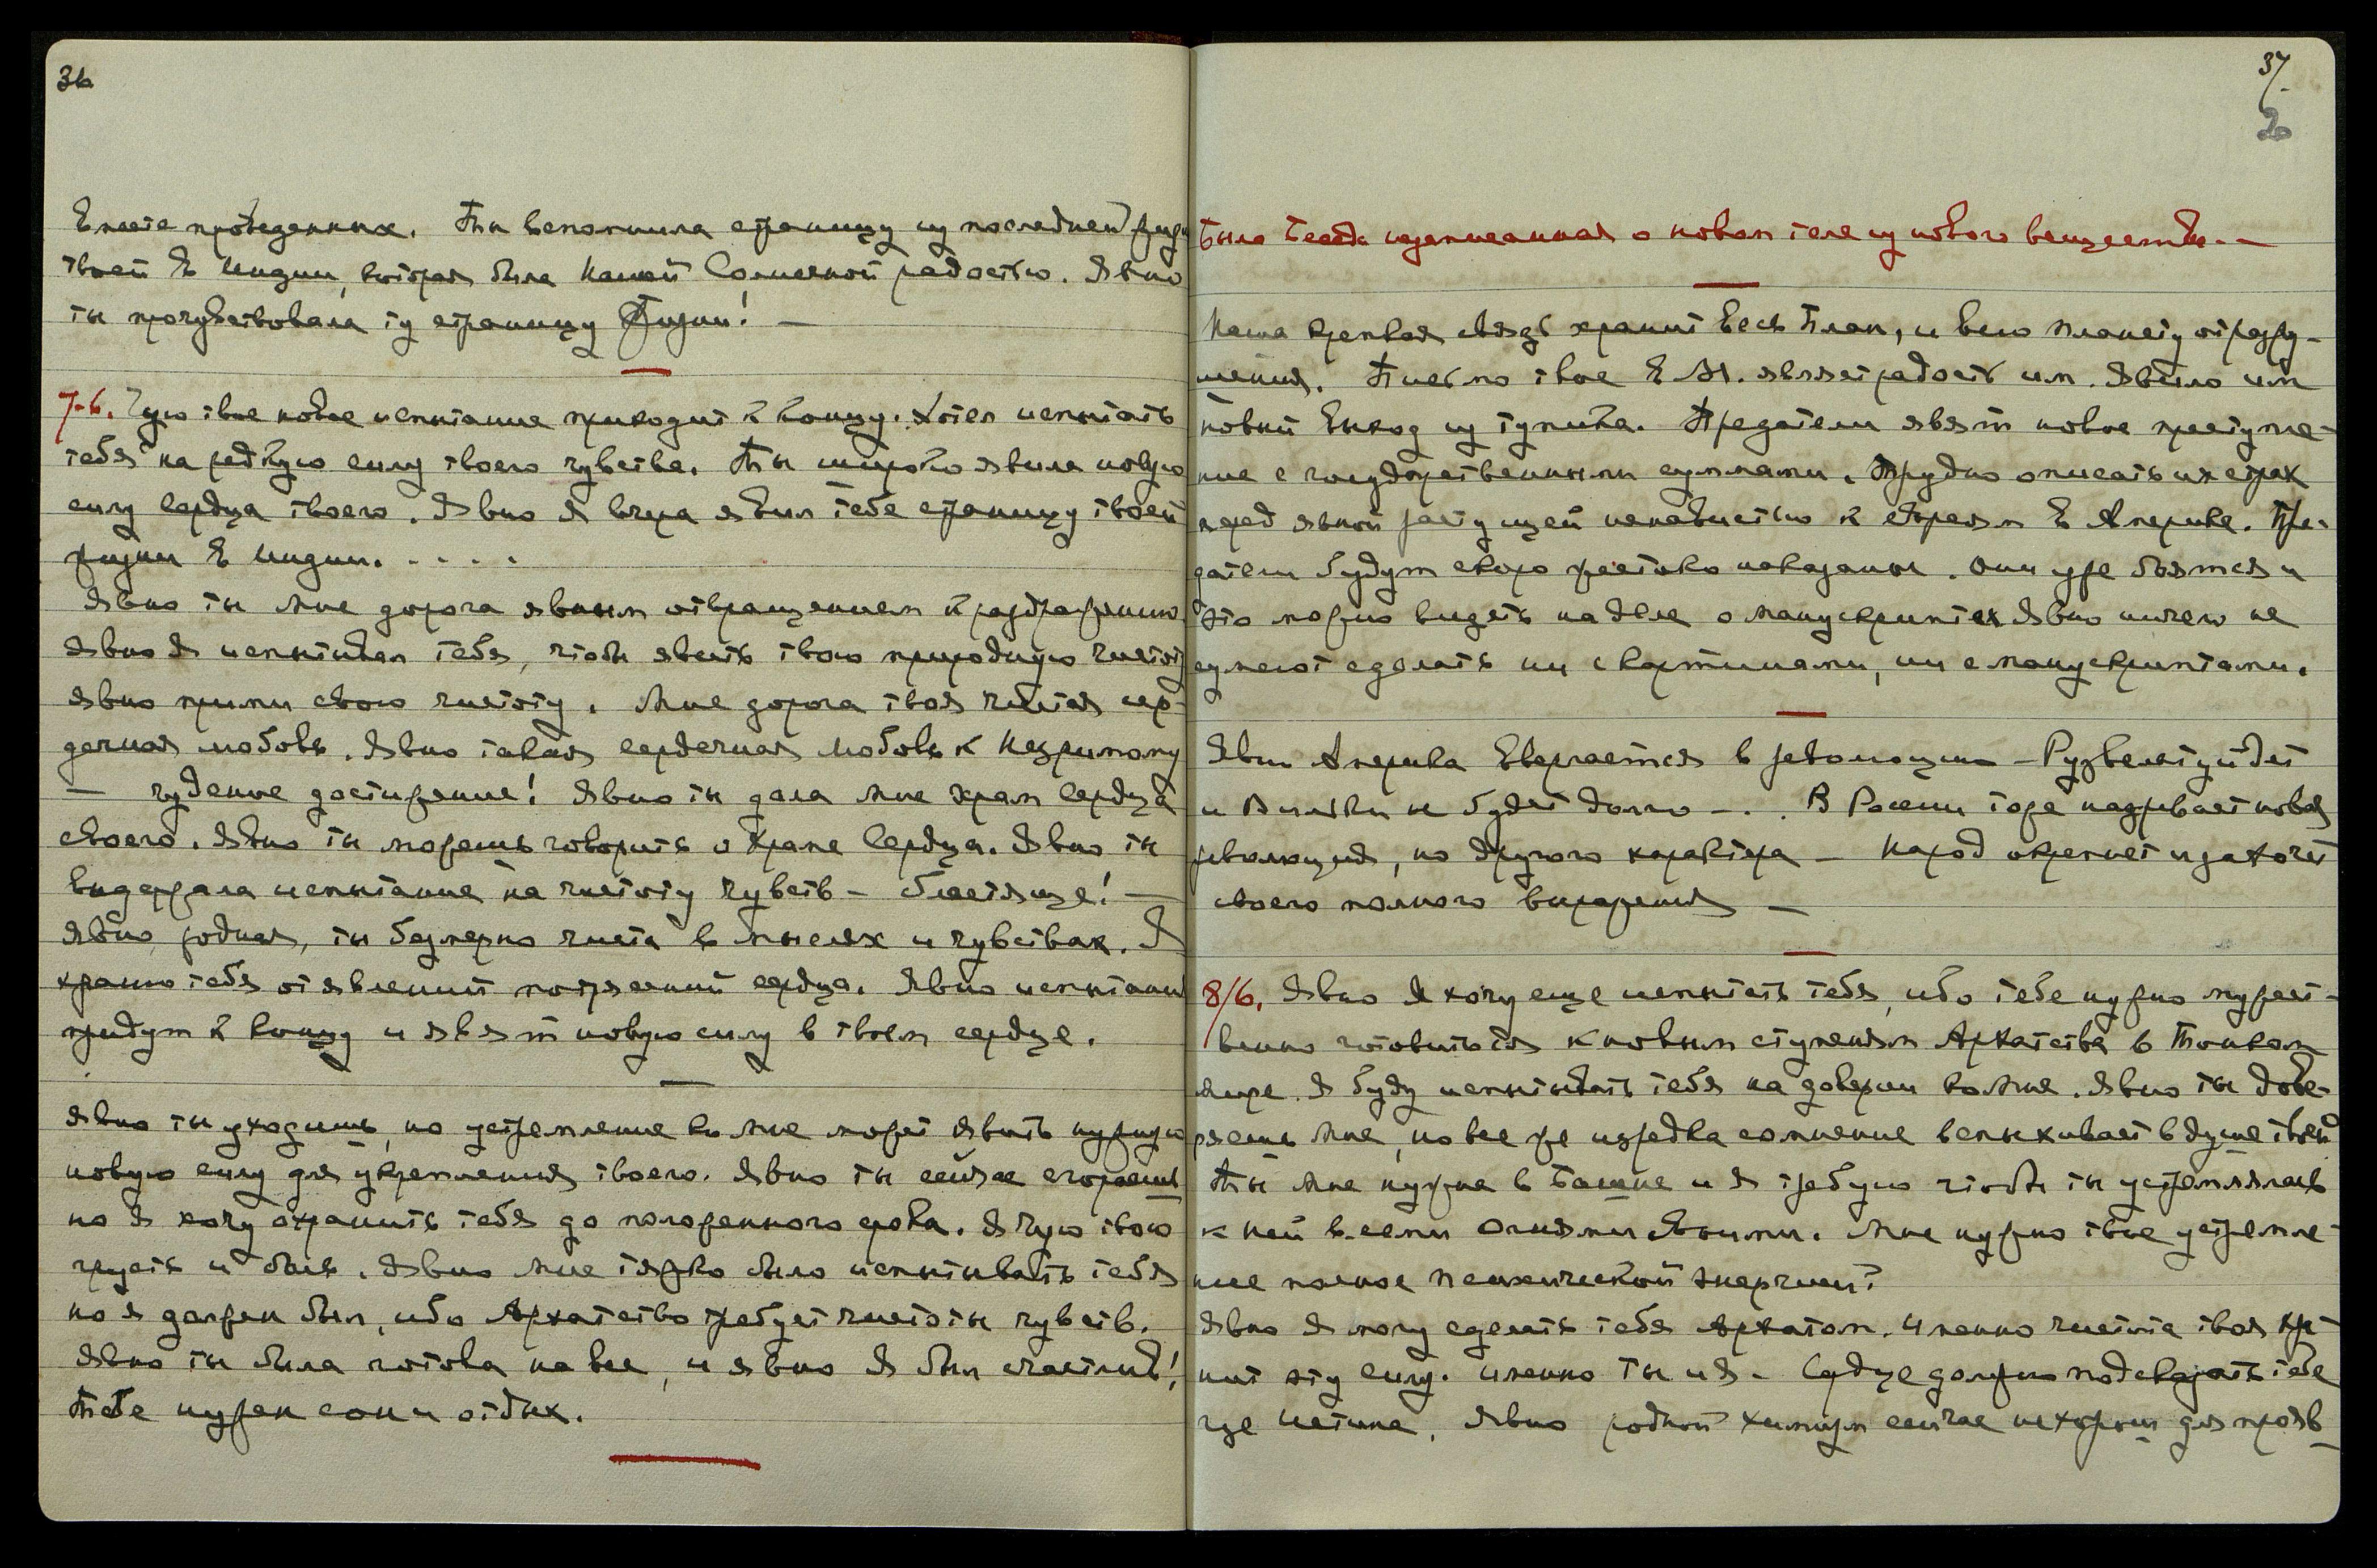 36
Вместе проведенных. Ты вспомнила страницу из последней жизни
твоей в Индии, которая была Нашей Солнечной радостью. Явно
ты прочувствовала ту страницу Жизни! —
7-6. Чую твое новое испытание приходит к концу. Хотел испытать
тебя на редкую силу твоего чувства. Ты широко явила новую
силу сердца твоего. Явно Я вчера явил тебе страницу твоей
жизни в Индии. . . . .
Явно ты Мне дорога явным отвращением к раздражению.
Явно Я испытывал тебя, чтобы явить твою природную чистоту
Явно прими свою чистоту. Мне дорога твоя чистая сер-
дечная любовь. Явно такая сердечная любовь к Незримому
— чудесное достижение! Явно ты дала Мне храм сердца
своего. Явно ты можешь говорить о Храме Сердца. Явно ты
выдержала испытание на чистоту чувств – блестяще! —
Явно, родная, ты безмерно чиста в мыслях и чувствах. Я
храню тебя от явлений потрясений сердца. Явно испытания
придут к концу и явят новую силу в твоем сердце.
Явно ты уходишь, но устремление ко Мне может явить нужную
новую силу для укрепления твоего. Явно ты сейчас сгораешь
но Я хочу охранить тебя до положенного срока. Я чую твою
грусть и боль. Явно Мне тяжко было испытывать тебя
но Я должен был, ибо Архатство требует чистоты чувств.
Явно ты была готова на все, и явно Я был счастлив!
Тебе нужен сон и отдых.
37
20
Была Беседа незаписанная о новом теле из нового вещества. —
Наша крепкая связь хранит весь План, и всю планету от разру-
шения. Письмо твое в Ам. являет радость им. Явило им
новый выход из тупика. Предатели явят новое преступле-
ние с государственными суммами. Трудно описать их страх
перед явной растущей ненавистью к евреям в Америке. Пре-
датели будут скоро жестоко наказаны. Они уже боятся и
это можно видеть на деле о манускриптах Явно ничего не
сумеют сделать ни с картинами, ни с манускриптами.
Явно Америка ввергается в революцию – Рузвельт уйдет
и Вилки не будет долго –. . В России тоже назревает новая
революция, но другого характера — Народ окрепнет и захочет
своего полного выражения —
8/6. Явно Я хочу еще испытать тебя, ибо тебе нужно мужест-
венно готовиться к новым ступеням Архатства в Тонком
Мире. Я буду испытывать тебя на доверии ко Мне. Явно ты дове-
ряешь Мне, но все же изредка сомнение вспыхивает в душе твоей
Ты Мне нужна в Башне и Я требую чтобы ты устремлялась
к ней всеми Огнями своими. Мне нужно твое устремле-
ние полное психической энергии!
Явно Я могу сделать тебя Архатом. Именно чистота твоя хра-
нит эту силу. Именно ты и Я. Сердце должно подсказать тебе
где истина. Явно родной химизм сейчас нехорош для прояв